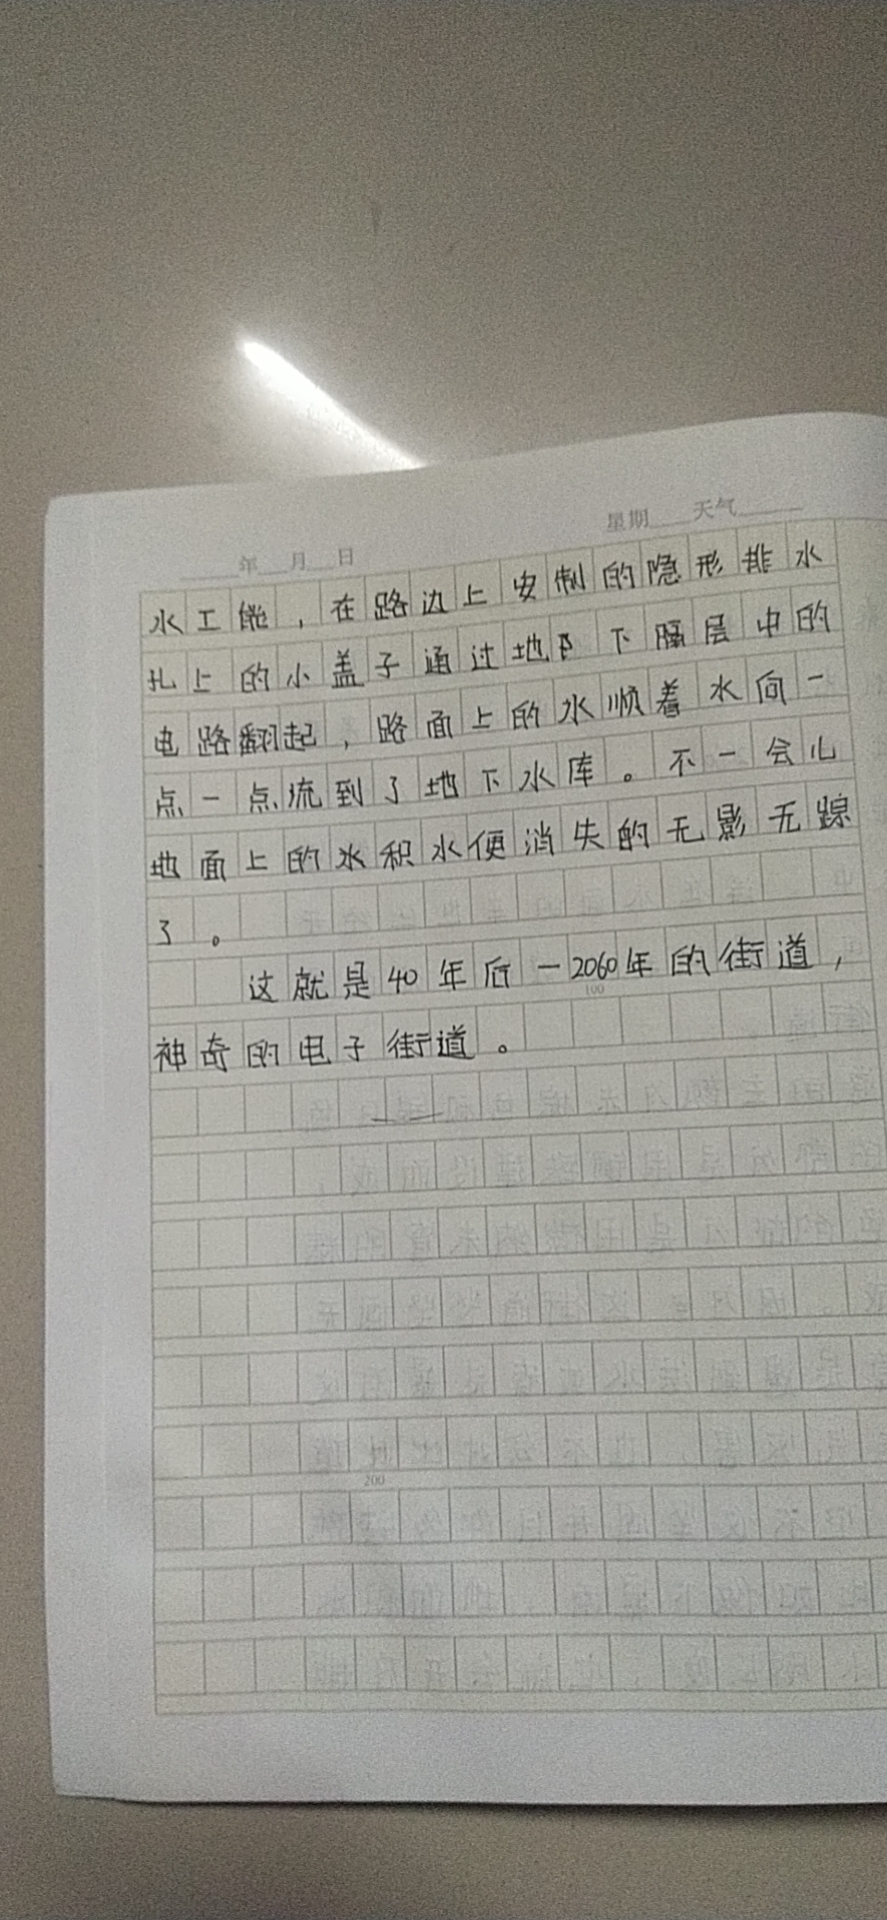 星期 天气
年 月 日
水工能，在路边上安制的隐形排水
扎上的小盖子通过地下隔层中的
电路翻起，路面上的水顺着水向一
点一点流到了地下水库。不一会儿
地面上的水积水便消失的无影无踪
了。
这就是40年后一2060年的街道，
100
神奇的电子街道。
200